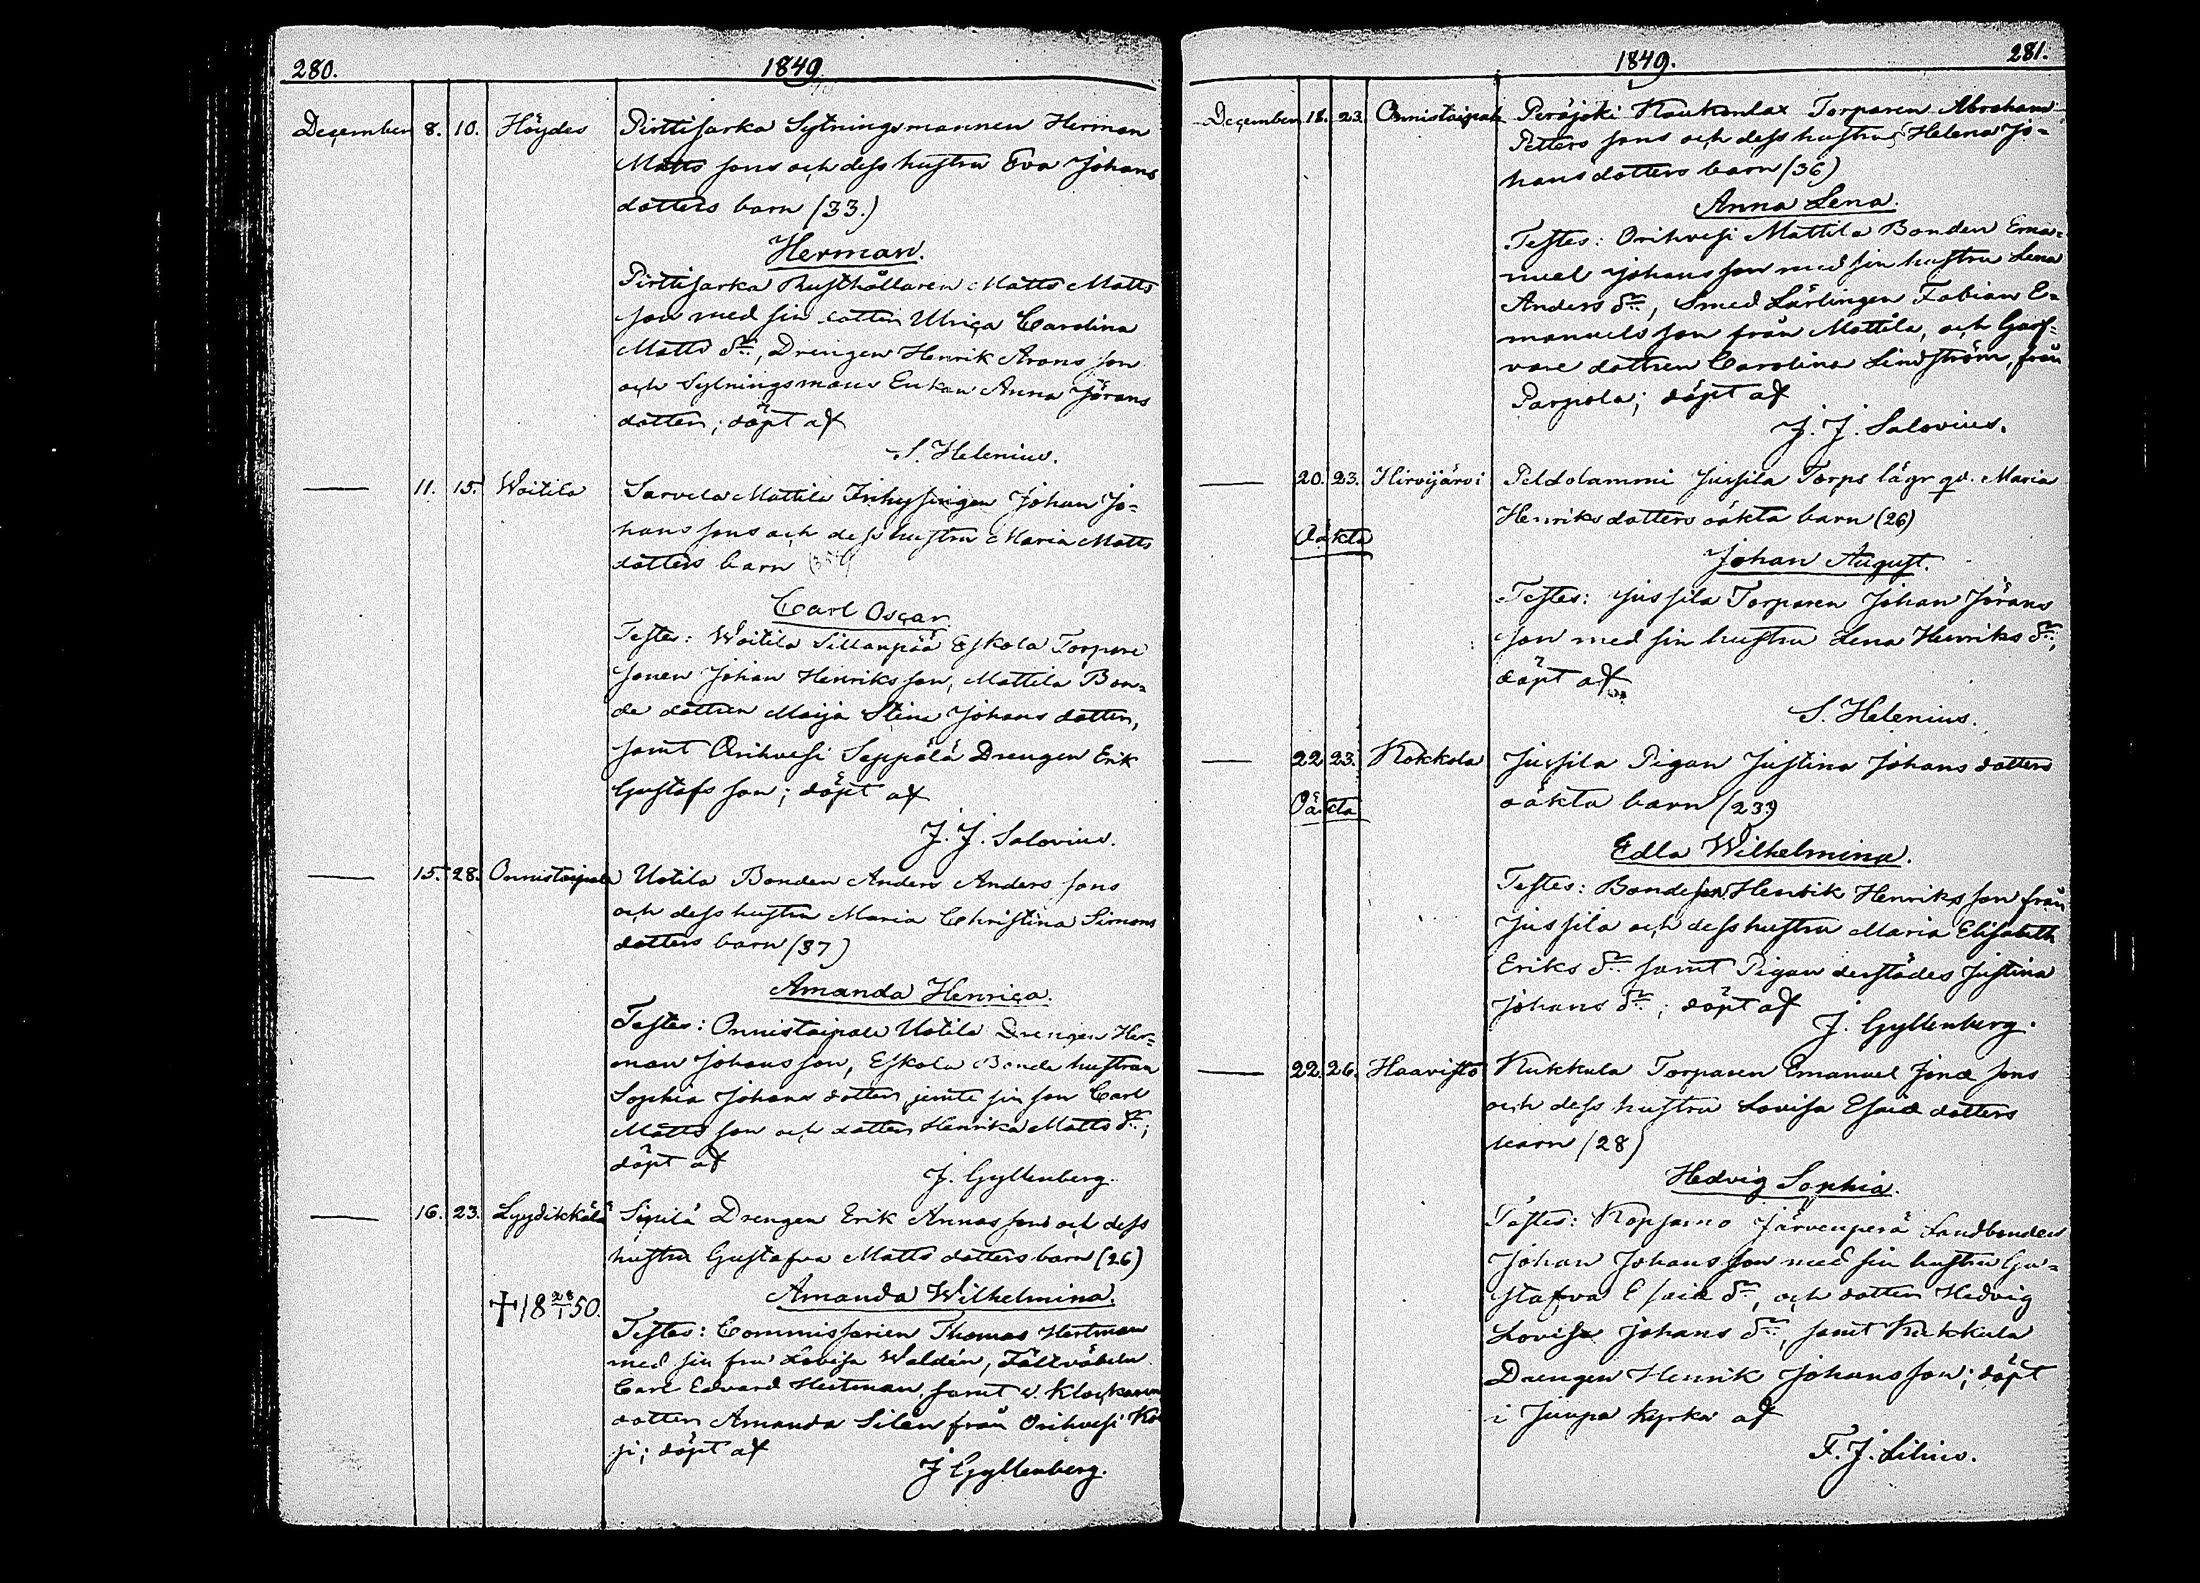 280.
1849.
December 8. 10. Höydes Pirttisarka Sytningsmannen Herman
Matts sons och dess hustru Eva Johans
dotters barn (33.)
Herman.
Pirttisarka Rusthållaren Matts Matts
son med sin dotter Ulrica Carolina
Matts dr., Drengen Henrik Arons son
och Sytningsmans Enkan Anna Jörans
dotter; döpt af
S. Helenius.
— 11. 15. Woitila Sarvela Mattila Inhysingen Johan Jo-
hans sons och dess hustru Maria Matts
dotters barn
Carl Oscar.
Testes: Woitila Sillanpää Eskola Torpare
sonen Johan Henriks son, Mattila Bon-
de dottren Maija Stina Johans dotter,
samt Orihvesi Seppälä Drengen Erik
Gustafs son; döpt af
J. J. Salovius.
— 15. 28. Onnistaipale Uotila Bonden Anders Anders sons
och dess hustru Maria Christina Simons
dotters barn (37)
Amanda Henrica.
Testes: Onnistaipale Uotila Drengen Her-
man Johans son, Eskola Bonde hustrun
Sophia Johans dotter, jemte sin son Carl
Matts son och dotter Henrika Matts dr.;
döpt af
J. Gyllenberg.
— 16. 23. Lyydikkälä Sipilä Drengen Erik Annas sons och dess
hustru Gustafva Matts dotters barn (26)
Amanda Wilhelmina.
† 18 28/1 50.
Testes: Commissarien Thomas Hertman
med sin fru Lovisa Waldén, Fältväbeln
Carl Edvard Hertman, samt v. Klockaren
dotter Amanda Silén från Orihvesi Ko
si; döpt af
J Gyllenberg.
1849.
281.
December 18. 23. Onnistaipale Peräjoki Naukonlax Torparen Abraham
Petters sons och dess hustrus Helena Jo-
hans dotters barn (36)
Anna Lena.
Testes: Orihvesi Mattila Bonden Ema-
nuel Johans son med sin hustru Lena
Anders dr., Smed Lärlingen Fabian E-
manuels son från Mattila, och Garf-
vare dottren Carolina Lindström, från
Parpola; döpt af
J. J. Salovius.
— 20. 23. Hirvijärvi Peldolammi Jussila Torps lägr qv. Maria
Henriks dotters oäkta barn (26)
Oäkta
Johan August.
Testes: Jussila Torparen Johan Jörans
son med sin hustru Lena Henriks dr.;
döpt af
S. Helenius.
— 22 23. Kokkola Jussila Pigan Justina Johans dotters
Oäkta
oäkta barn (23)
Edla Wilhelmina.
Testes: Bondeson Henrik Henriks son från
Jussila och dess hustru Maria Elisabeth
Eriks dr. samt Pigan derstädes Justina
Johans dr.; döpt af
J. Gyllenberg.
— 22. 26. Haavisto Kukkula Torparen Emanuel Jonæ sons
och dess hustru Lovisa Esaiæ dotters
barn (28)
Hedvig Sophia.
Testes: Kopsamo Järvenperä Landbonden
Johan Johans son med sin hustru Gu-
stafva Esaiæ dr., och dotter Hedvig
Lovisa Johans dr., samt Kukkula
Drengen Henrik Johans son; döpt
i Juupa kyrka af
F. J. Lilius.